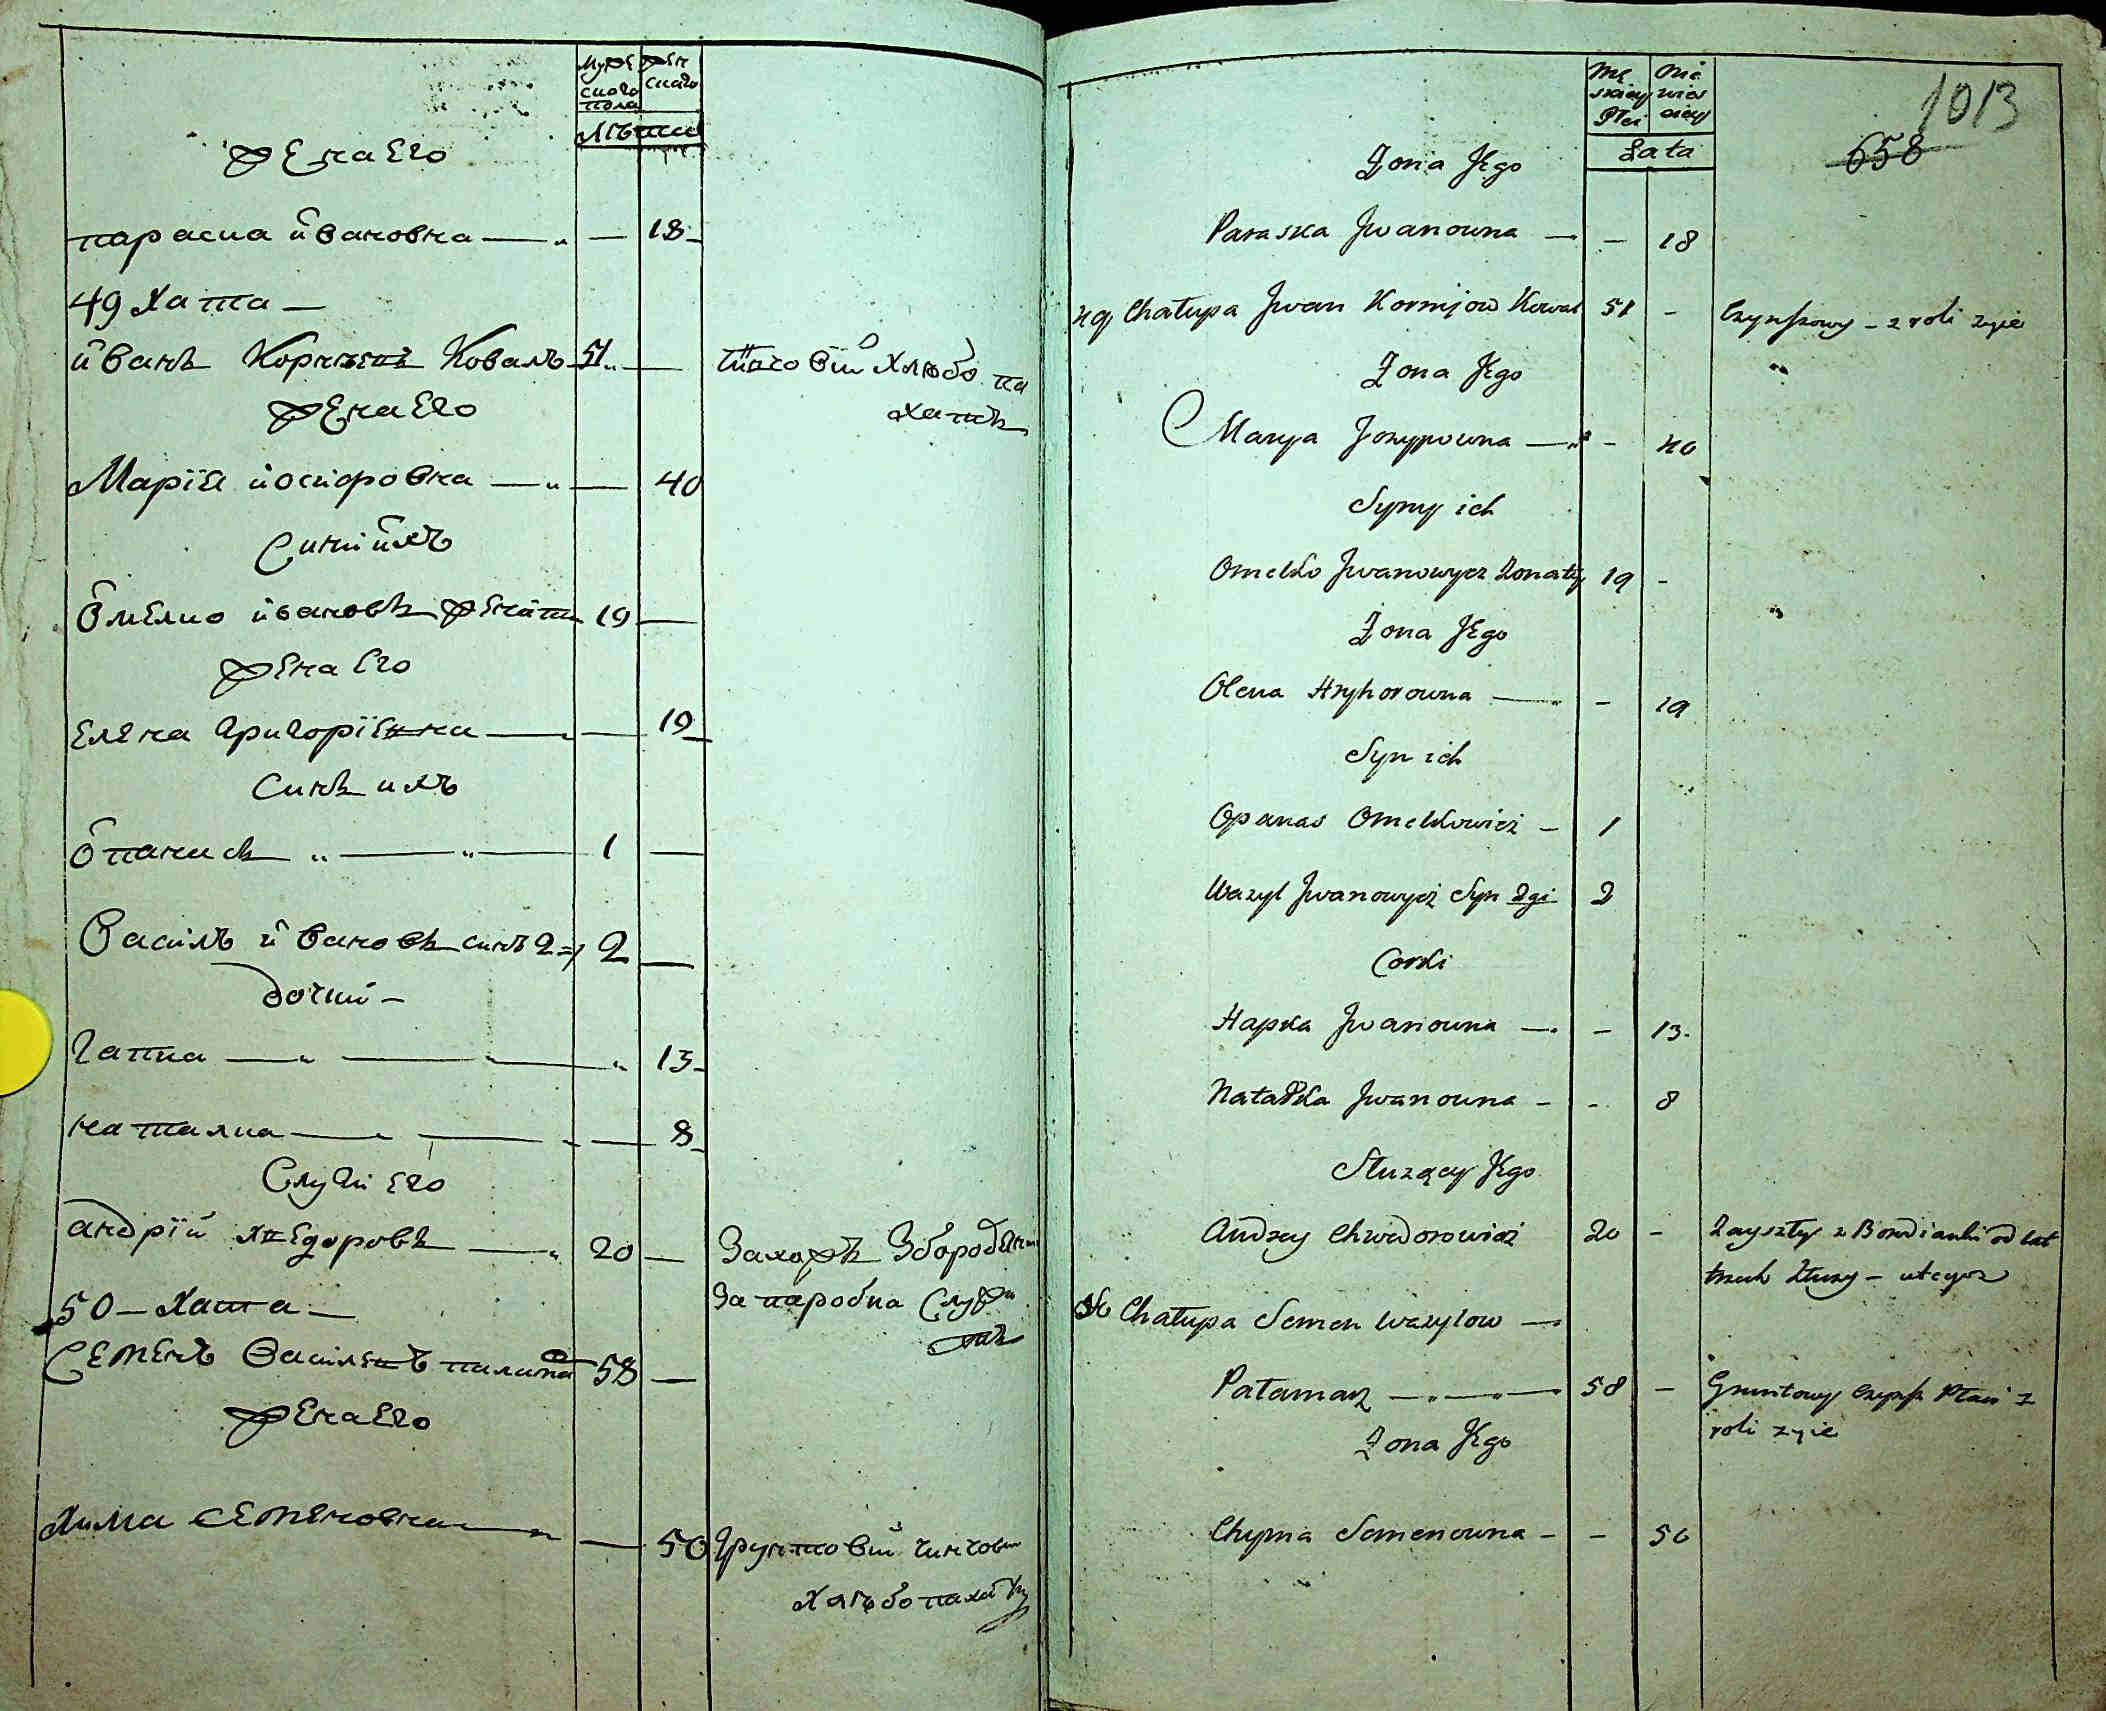 Муже
ского
пола
жен
ского
Лѣта
жена Его
параска йвановна — „ — 18
49 Хата —
йванъ Корнѣевъ Коваль 51 „ —
жена Его
Марїя йосифовна — „ — 40
Сини йхъ
Омелко йвановъ женатъ 19 —
жена Его
Елена григорїевна — — 19
Синъ ихъ
Опанасъ „ — „ — 1 —
Василь йвановъ синъ 2 = 2 —
дочки —
гапка — „ — „ 13
наталка — — — 8
Слуги Его
андрїй хведоровъ — „ 20 —
Захоръ
За паробка Служи
50 — Хата —
Семенъ Василевъ 58 —
жена Его
Хима Семеновна — „ — 50
грунтовий чиншов
хлѣбопаха
Mę
skiey
Płci
Nie
wies
ciey
Lata
1013
658
Żona Jego
Paraska Jwanowna — — 18
49 Chałupa Jwan Kornijow Kowal 51 - Czynszowy - z roli żyie
Żona Jego
Marya Jozypowna — „ - 40
Syny ich
Omelko Jwanowycz żonaty 19 -
Żona Jego
Olena Hryhorowna — - 19
Syn ich
Opanas Omelkowicz - 1
Wazyl Jwanowycz Syn 2gi 2
Corki
Hapka Jwanowna — - 13
Natałka Jwanowna - - 8
Służący Jego
Andrzy Chwedorowicz 20 - Zayszły z Borodianki od lat
trzech służy -
50 Chałupa Semen Wazylow —
Pałamarz — „ — „ — 58 - Gruntowy Czynsz Płaci z
roli żyie
Żona Jego
Chyma Semenowna - - 50